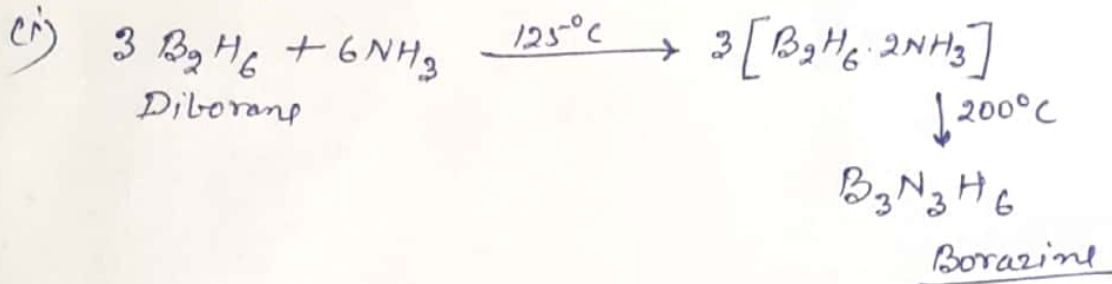 (i) 3 B₂H₆ + 6NH₃ 125°C → 3[B₂H₆·2NH₃]
Diborane
↓ 200°C
B₃N₃H₆
Borazine